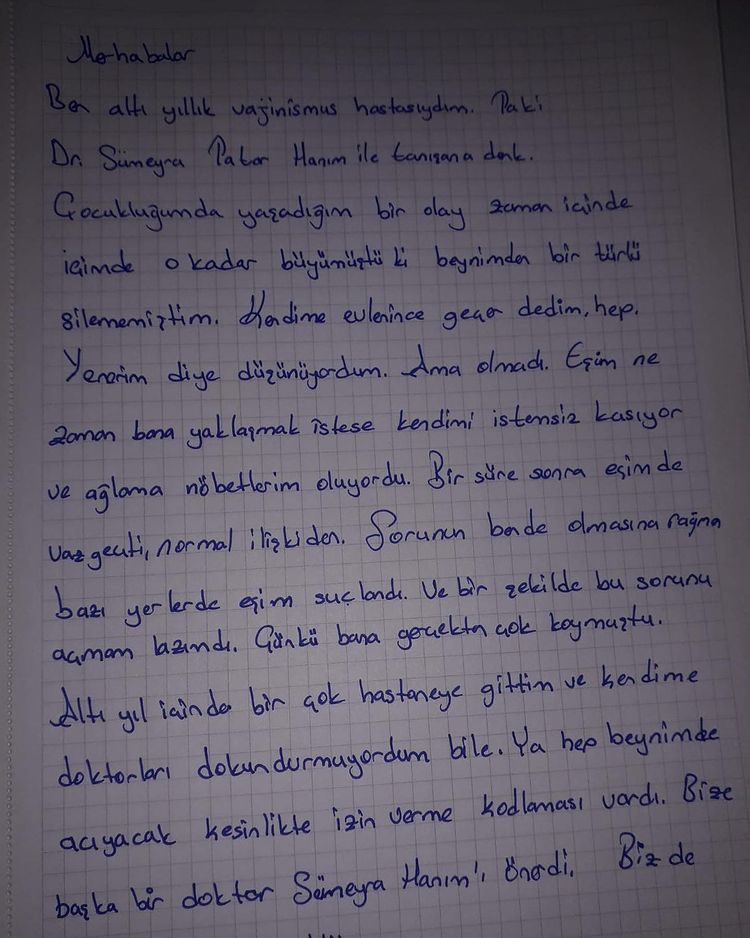 Merhabalar
Ben altı yıllık vajinismus hastasıydım. Taki
Dr. Sümeyra Patar Hanım ile tanışana dek.
Çocukluğumda yaşadığım bir olay zaman içinde
içimde o kadar büyümüştü ki beynimden bir türlü
silememiştim. Kendime evlenince geçer dedim, hep.
Yenerim diye düşünüyordum. Ama olmadı. Eşim ne
zaman bana yaklaşmak istese kendimi istensiz kasıyor
ve ağlama nöbetlerim oluyordu. Bir süre sonra eşimde
vazgeçti, normal ilişkiden. Sorunun bende olmasına rağmen
bazı yerlerde eşim suçlandı. Ve bir şekilde bu sorunu
açmam lazımdı. Çünkü bana gerçekten çok koymuştu.
Altı yıl içinde bir çok hastaneye gittim ve kendime
doktorları dokundurmuyordum bile. Ya hep beynimde
acıyacak kesinlikte izin verme kodlaması vardı. Bize
başka bir doktor Sümeyra Hanım'ı önerdi. Biz de